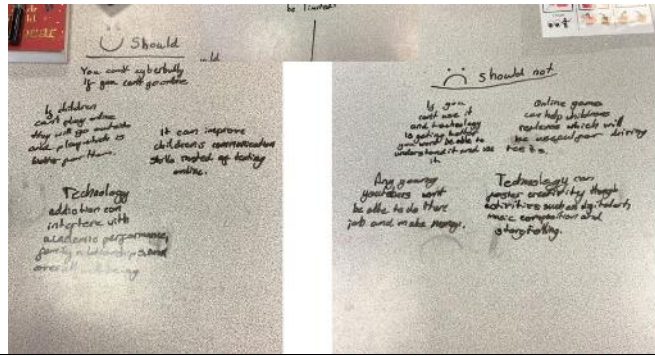 be limited.
Should
You can't cyberbully
If you can't go online
If children
can't play online
they will go outside
and play which is
better for them.
It can improve
children's communication
skills insted of texting
online.
Technology
addiction can
interfere with
academic performance,
family relationships, and
overall well being
should not
If you
cant use it
and technology
is geting better
you wont be able to
understand it and use
it.
Online games
can help childrens
which will
be useful for driving
Any young
youtubers wont
be able to do there
job and make money.
Technology can
foster creativity though
activities such as digital art,
music composition and
storytelling.